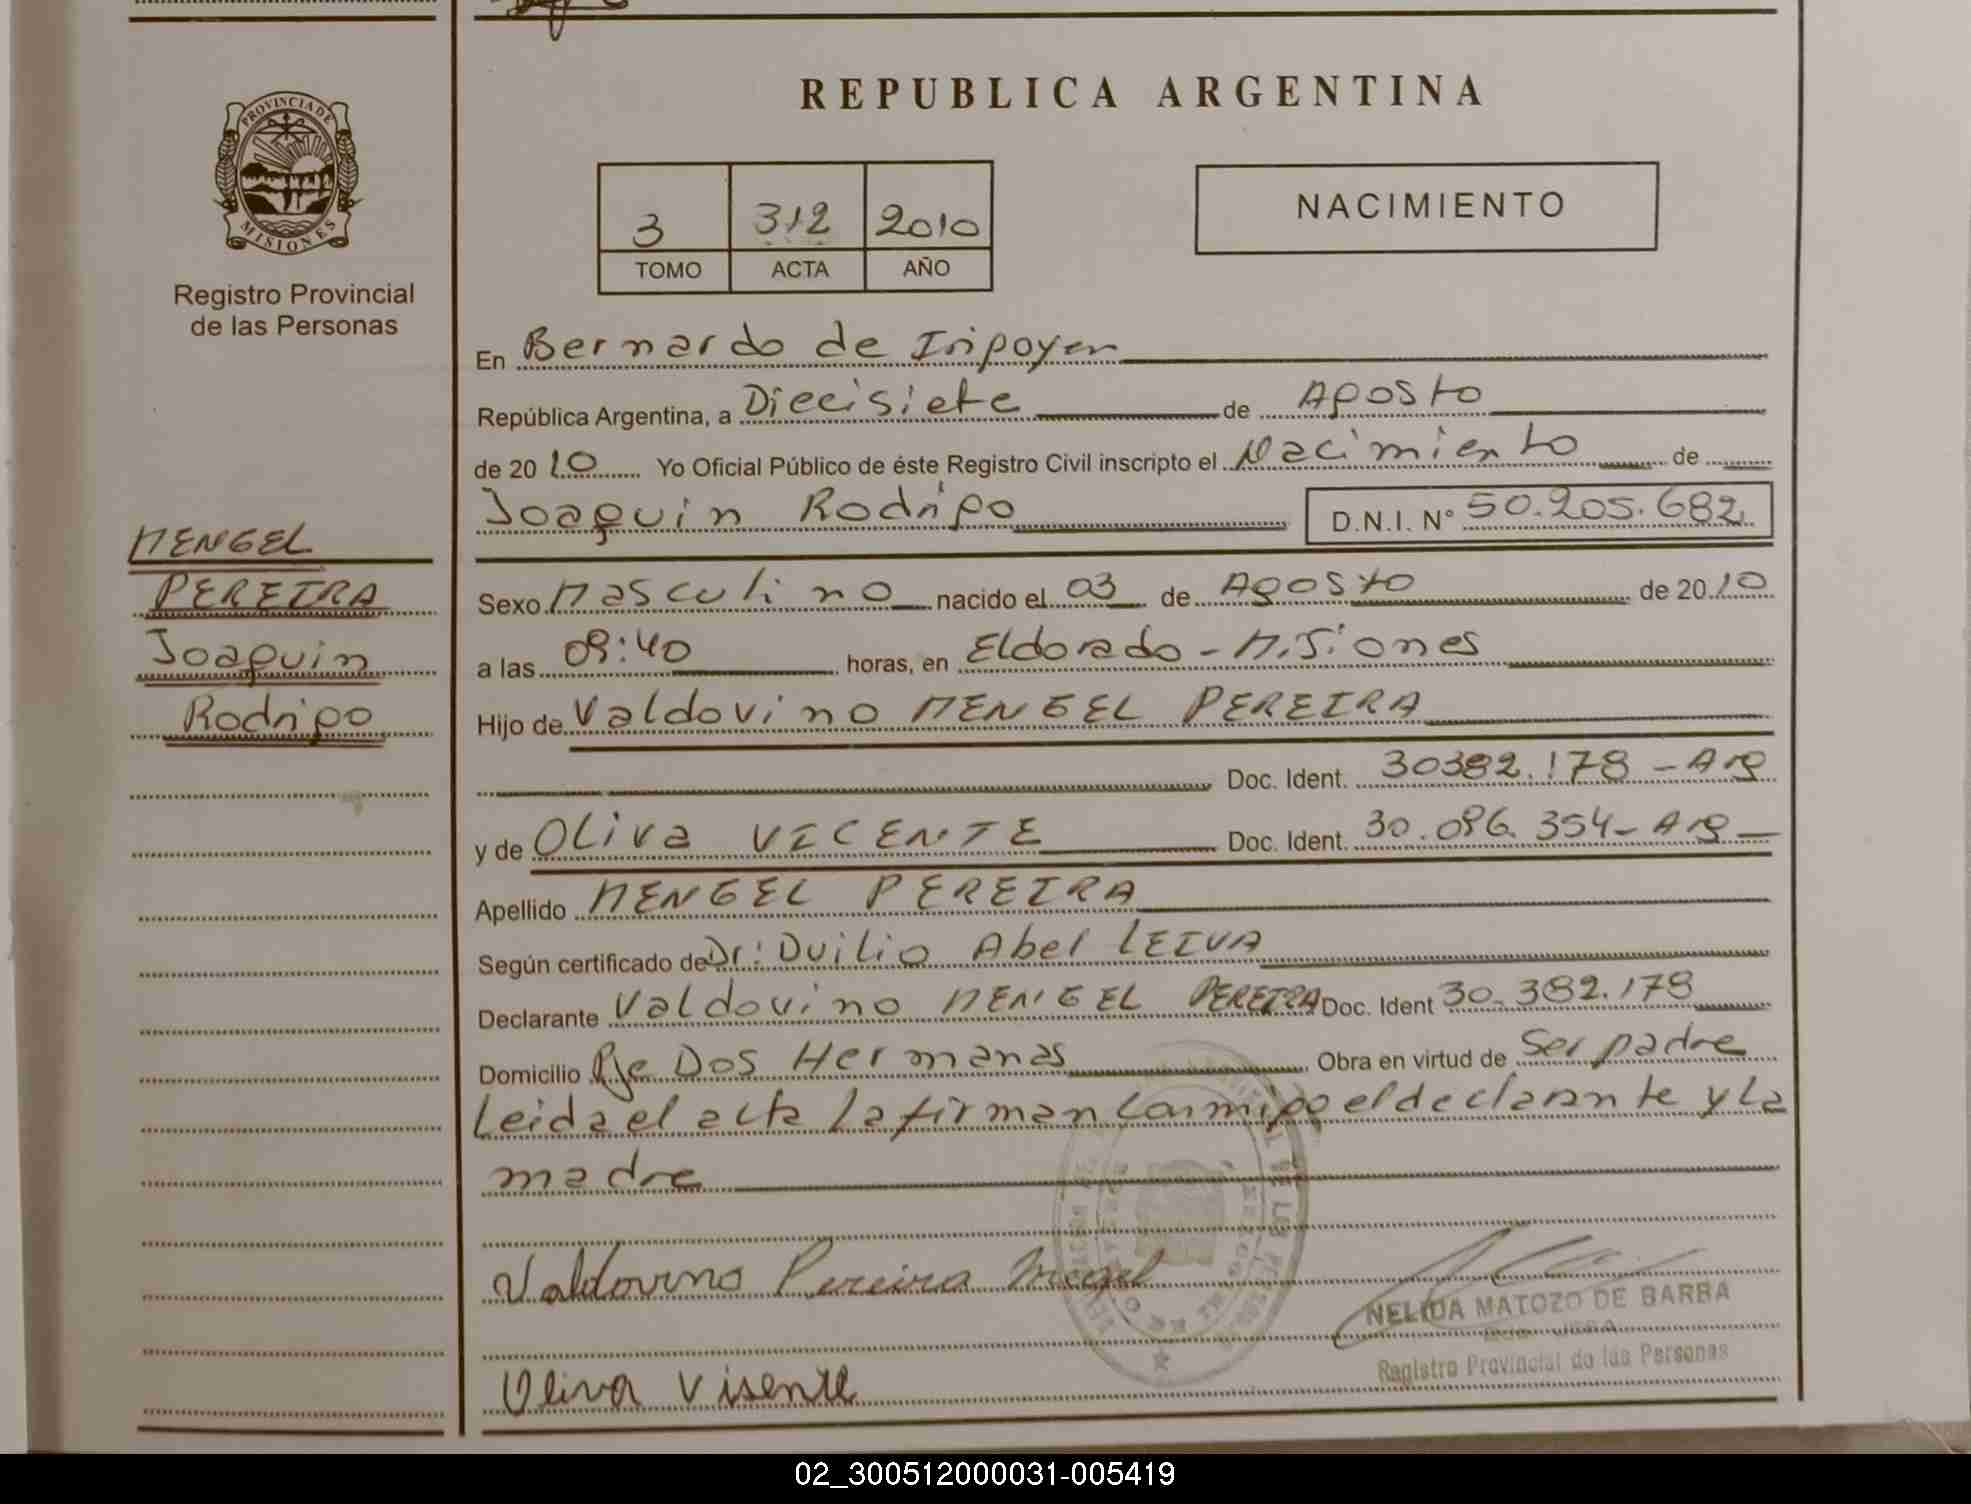 REPUBLICA ARGENTINA
PROVINCIA DE
MISIONES
Registro Provincial
de las Personas
3 312 2010
TOMO ACTA AÑO
NACIMIENTO
En Bernardo de Irigoyen
República Argentina, a Diecisiete de Agosto
de 2010 Yo Oficial Público de éste Registro Civil inscripto el Nacimiento de
Joaquin Rodrigo D.N.I. N° 50.205.682
MENGEL
PEREIRA
Joaquin
Rodrigo
Sexo Masculino nacido el 03 de Agosto de 2010
a las 09:40 horas, en Eldorado - Misiones
Hijo de Valdovino MENGEL PEREIRA
Doc. Ident. 30382.178 - Arg
y de Oliva VICENTE Doc. Ident. 30.096.354 - Arg
Apellido MENGEL PEREIRA
Según certificado de Dr: Duilio Abel LEIVA
Declarante Valdovino MENGEL PEREIRA Doc. Ident 30.382.178
Domicilio Pje Dos Hermanas Obra en virtud de Ser padre
Leida el acta la firman conmigo el declarante y la
madre
Valdovino Pereira Megel
NELIDA MATOZO DE BARBA
Registro Provincial de las Personas
Oliva Visente
02_300512000031-005419